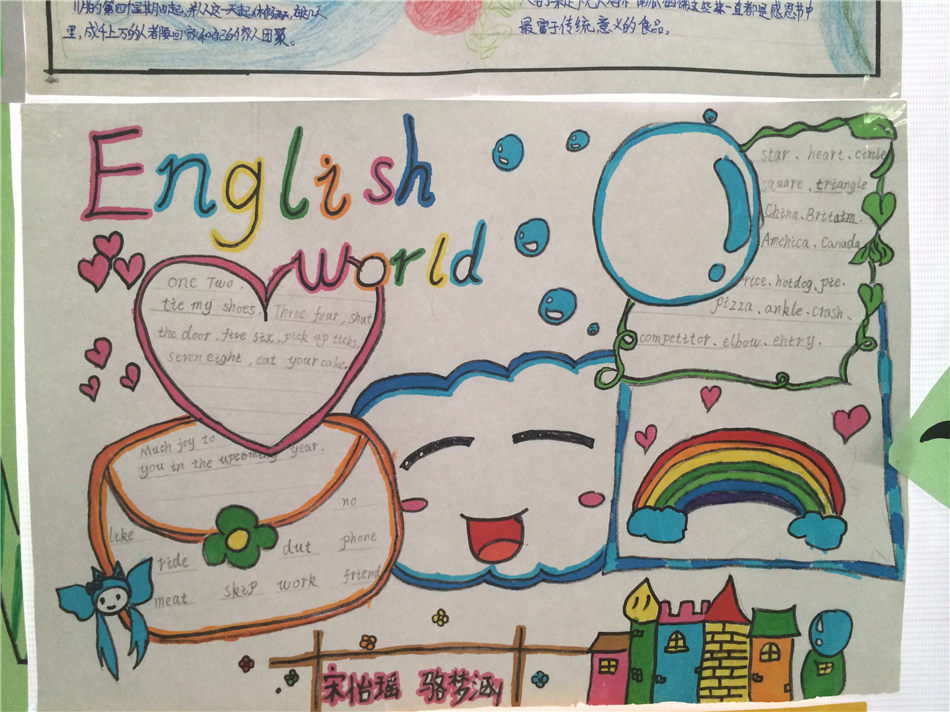 里，成千上万的人都要回家和自己的家人团聚。
最富于传统意义的食品。
English
World
star、heart、circle
square、triangle
China、Britain.
America、Canada
rice、hotdog、pie.
pizza、ankle、crash、
competitor、elbow、entry.
one Two,
tie my shoes. Three four, shut
the door, five six, pick up
seven eight, eat your cake.
Much joy to
you in the upcoming year.
no
like
ride
dut
phone
meat
skip
work
friend
宋怡瑶 骆梦涵